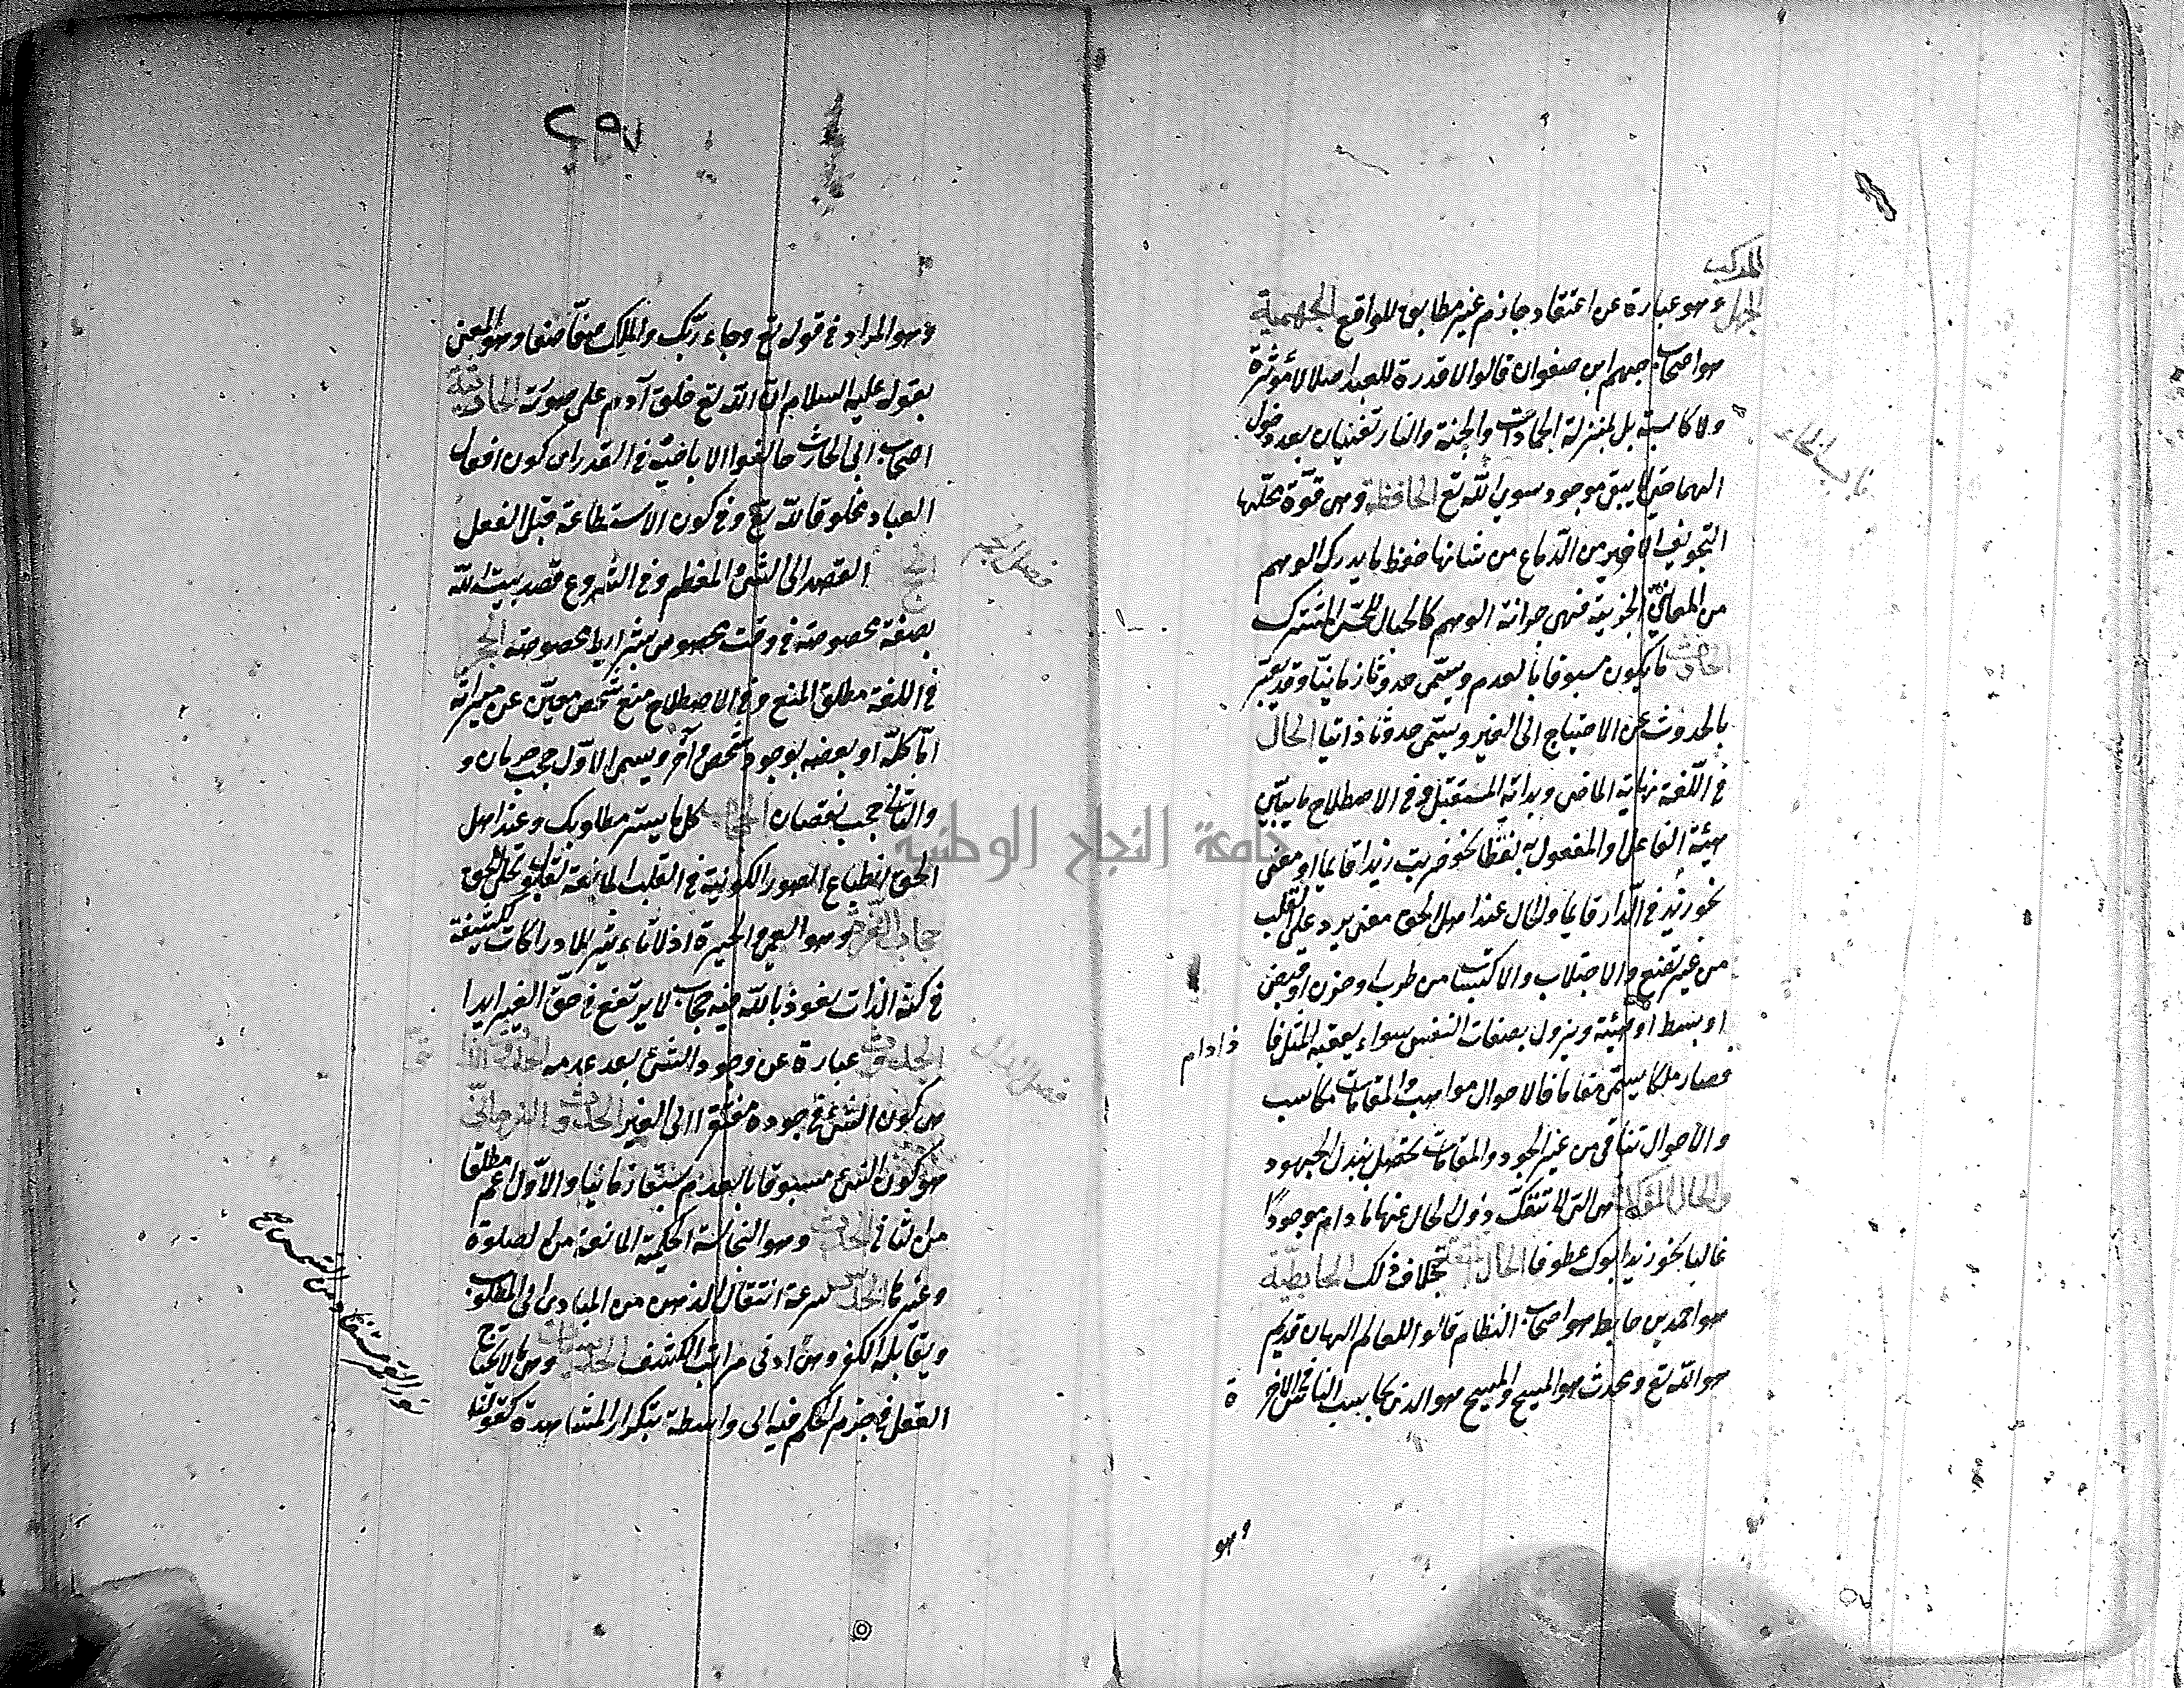 المركب
الجهل وهو عبارة عن اعتقاد جازم غير مطابق للواقع الجهمية
هو اصحاب جهم ابن صفوان قالوا لا قدرة للعبد اصلا لا مؤثرة
ولا كاسبة بل بمنزلة الجمادات والجنة والنار تفنيان بعد دخول
اهلهما حتى لا يبقى موجود سوى الله تع الحافظة وهى قوة محلها
التجويف الاخير من الدماغ من شانها حفظ ما يدرك الوهم
من المعانى الجزئية فهى خزانة الوهم كالخيال للحس المشترك
الحادث ما يكون مسبوقا بالعدم ويسمى حدوثا زمانيا وقد يعبّر
بالحدوث عن الاحتياج الى الغير ويسمى حدوثا ذاتيا الحال
فى اللغة نهاية الماضى وبداية المستقبل وفى الاصطلاح ما يبين
هيئة الفاعل والمفعول به لفظا نحو ضربت زيدا قايما او معنى
نحو زيد فى الدار قايما والحال عند اهل الحق معنى يرد على القلب
من غير تصنع والاجتلاب والاكتساب من طرب او حزن او قبض
او بسط او هيئة ويزول بصفات النفس سواء يعقبه المثل
فا ذا دام
وصار ملكا يسمى مقاما فالاحوال مواهب والمقامات مكاسب
والاحوال تتأتى من عين الجود والمقامات تحصل ببذل المجهود
والحال المؤكدة هى التى لا تنفك ذو الحال عنها ما دام موجودًا
غالبا نحو زيد ابوك عطوفا الحال المنتقلة بخلاف ذلك الحايطية
هو احمد بن حايط هو اصحاب النظام قالوا للعالم الهان قديم
هو الله تع ومحدث هو المسيح والمسيح هو الذى يحاسب الناس فى الاخرة
وهو
٢٩٧
وهو المراد فى قوله تع وجاء ربك والملك صفّا صفا وهو المعنى
بقوله عليه السلام ان الله تع خلق آدم على صورته الحارثية
اصحاب ابى الحارث خالفوا الاباضية فى القدر اى كون افعال
العباد مخلوقا لله تع وفى كون الاستطاعة قبل الفعل
الحج القصد الى الشئ المعظم وفى الشروع قصد بيت الله
بصفة مخصوصة فى وقت مخصوص بشرايط مخصوصة الحجر
فى اللغة مطلق المنع وفى الاصطلاح منع شخص معين عن ميراثه
امّا كله او بعضه بوجود شخص آخر ويسمى الاول حجب حرمان و
والثانى حجب نقصان الحجاب كل ما يستر مطلوبك وعند اهل
الحق انطباع الصور الكونية فى القلب المانعة لقبول تجلى الحق
حجاب العزة وهو العمى والحيرة اذ لا تاثير للادراكات الكشفية
فى كنه الذات نعوذ بالله فيه حجاب لا يرتفع فى حق الغير ابدا
الحدوث عبارة عن وجود الشئ بعد عدمه الحدوث الذاتى
هى كون الشئ فى وجوده مفتقرا الى الغير الحدوث الزمانى
هو كون الشئ مسبوقا بالعدم سبقا زمانيا والاول اعم مطلقا
من الثانى الحدث وهو النجاسة الحكمية المانعة من الصلوة
وغيرها الحدس سرعة انتقال الذهن من المبادى الى المطلوب
ويقابله الفكر وهى ادنى مراتب الكشف الحدسيات وهى ما لا يحتاج
العقل فى جزم الحكم فيه الى واسطة بتكرار المشاهدة كقولنا
نور القمر مستفاد من الشمس صح